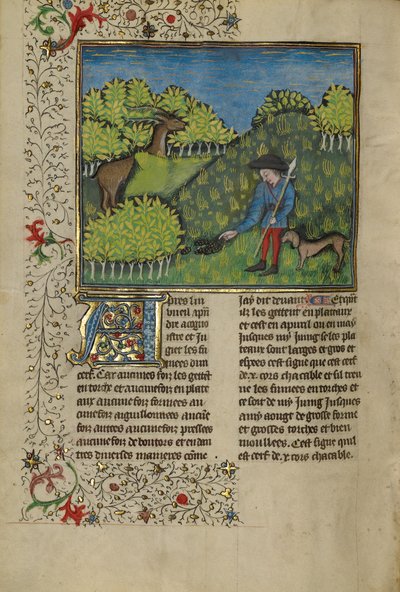 Apres lui
vueil apn
dre a cung
nastre et ju
gier les fu
mees dun
cerf. Car aucunes fois les gettet
en torche et aucunefois en plate
aux aucunefois formees au
cunefois aguillonnees aucune
fois autres aucunefois presses
aucunefois de boutors et en dau
tres diverses manieres come
Jay dit devant. Et quat
ilz les gettent en plateaux
et cest en apuril ou en may
Jusques my Juing se les pla
teaux sont larges et gros et
espees cest signe que cest cerf
de .x. cors chacable et sil treu
ue les fumees en torches et
ce soit de my Juing Jusques
a my aougt de grosse forme
et grosses torches et bien
moullees. Cest signe quil
est cerf de .x. cors chacable.